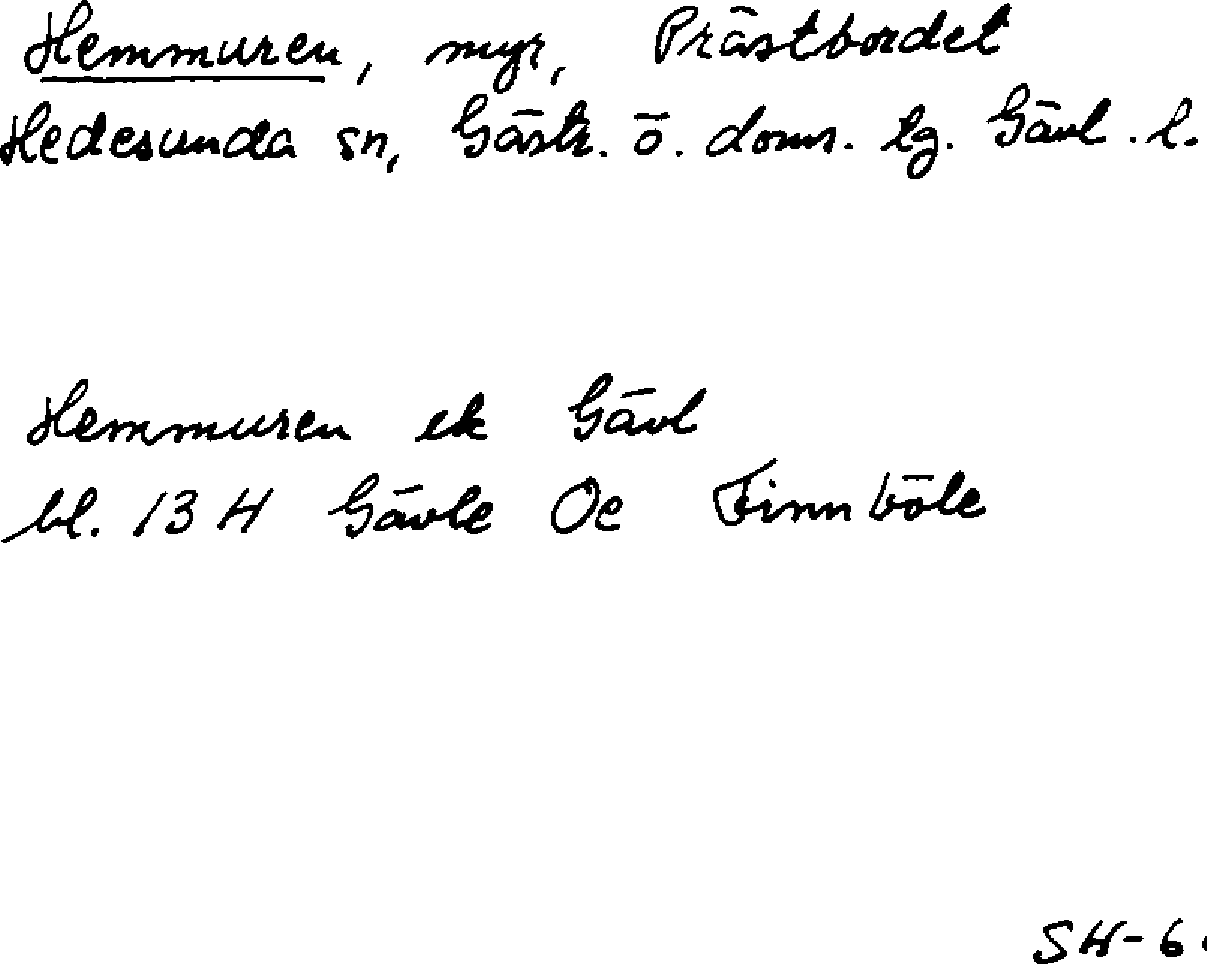 Hemmuren, myr, Prästbordet
Hedesunda sn, Gästr. ö. doms. tg. Gävl. l.
Hemmuren ek Gävl
bl. 13 H Gävle Oe Finnböle